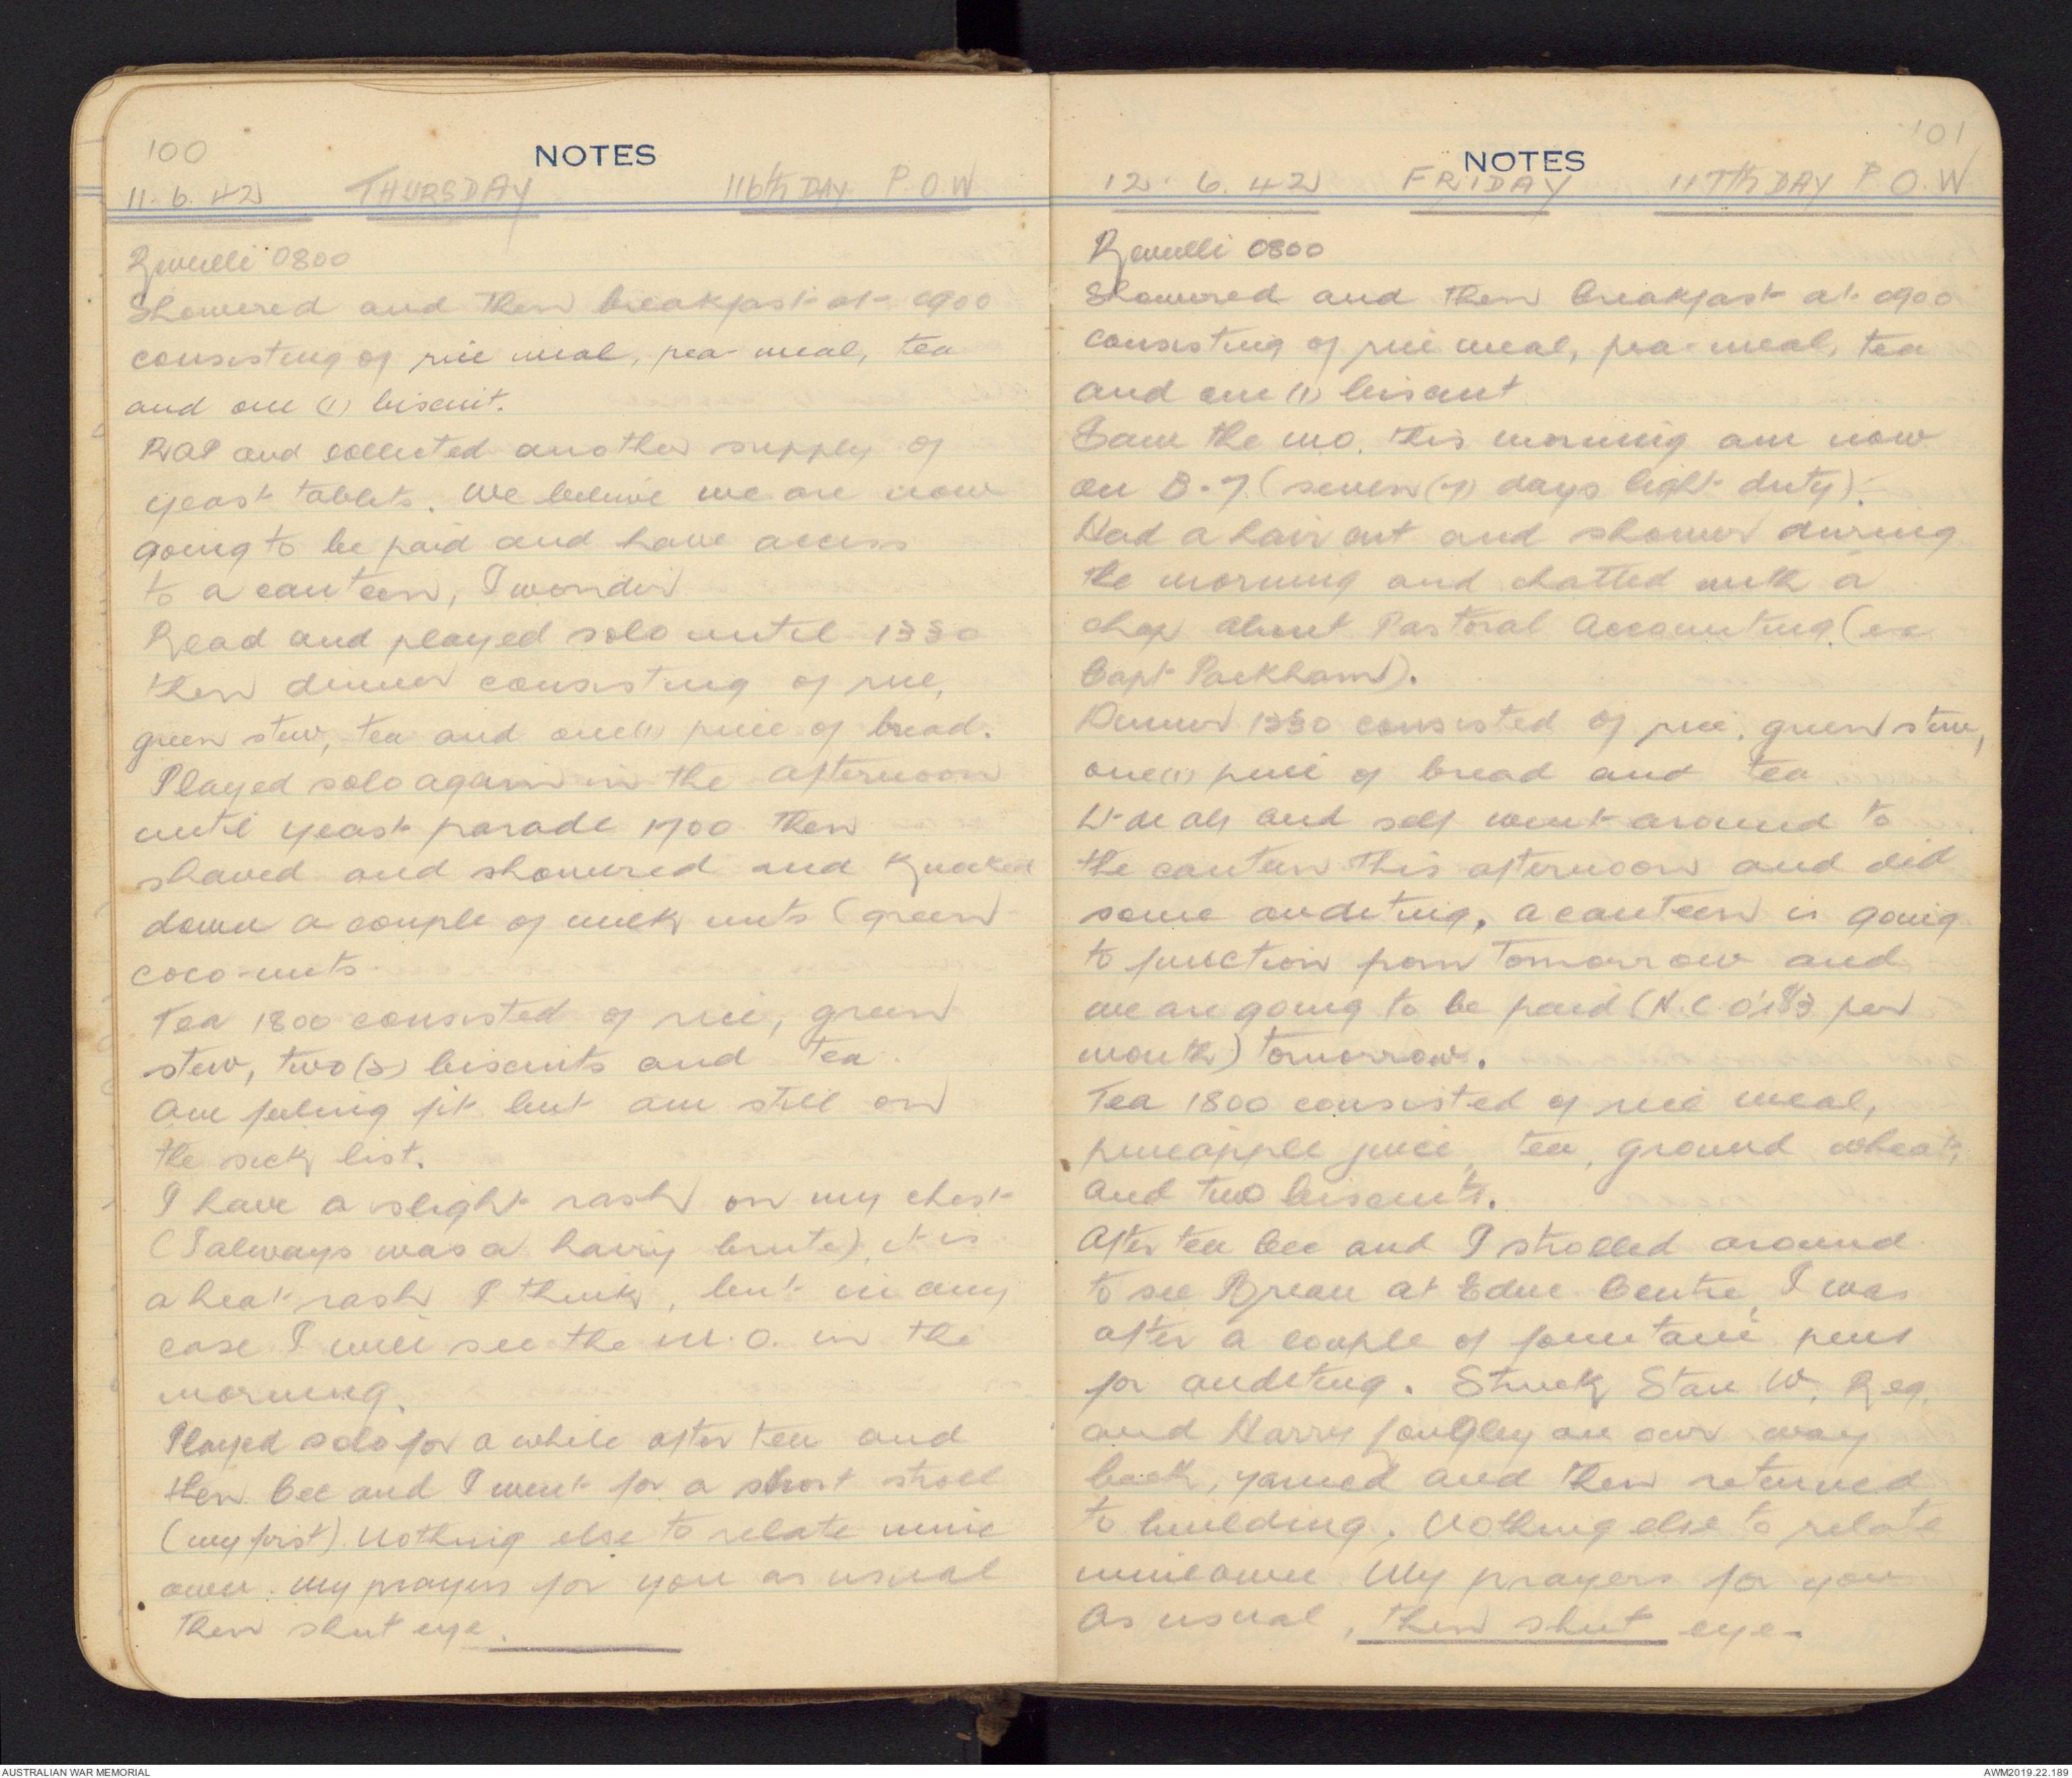 100
NOTES
11.6.42 THURSDAY 116th DAY P.O.W
Revielli 0800
Showered and then breakfast at 0900
consisting of rice meal, pea-meal, tea
and one (1) biscuit.
RAP and collected another supply of
yeast tablets. We believe we are now
going to be paid and have access
to a canteen, I wonder
Read and played solo until 1330
then dinner consisting of rice,
green stew, tea and one (1) piece of bread.
Played solo again in the afternoon
until yeast parade 1700 then
shaved and showered and knocked
down a couple of milk nuts (green
coco-nuts.
Tea 1800 consisted of rice, green
stew, two (2) biscuits and tea.
Am feeling fit but am still on
the sick list.
I have a slight rash on my chest
(I always was a hairy brute), it is
a heat rash I think, but in any
case I will see the M.O. in the
morning.
Played solo for a while after tea and
then Cec and I went for a short stroll
(my first). Nothing else to relate mine
own. My prayers for you as usual
then shut eye.
101
NOTES
12.6.42 FRIDAY 117th DAY P.O.W
Revielli 0800
Showered and then breakfast at 0900
consisting of rice meal, pea-meal, tea
and one (1) biscuit
Saw the M.O. this morning am now
on B-7 (seven (7) days light duty).
Had a hair cut and shower during
the morning and chatted with a
chap about Pastoral Accounting. (ex
Capt Packham).
Dinner 1330 consisted of rice, green stew,
one (1) piece of bread and tea
and self went around to
the canteen this afternoon and did
some auditing, a canteen is going
to function from tomorrow and
we are going to be paid (N.C.O's per
month) tomorrow.
Tea 1800 consisted of rice meal,
pineapple juice, tea, ground wheat,
and two biscuits.
After tea Cec and I strolled around
to see at Educ. Centre, I was
after a couple of fountain pens
for auditing. Struck Stan W, Reg.
and Harry Longley on our way
back, yarned and then returned
to building. Nothing else to relate
mine own. My prayers for you
as usual, then shut eye.
AUSTRALIAN WAR MEMORIAL
AWM2019.22.189